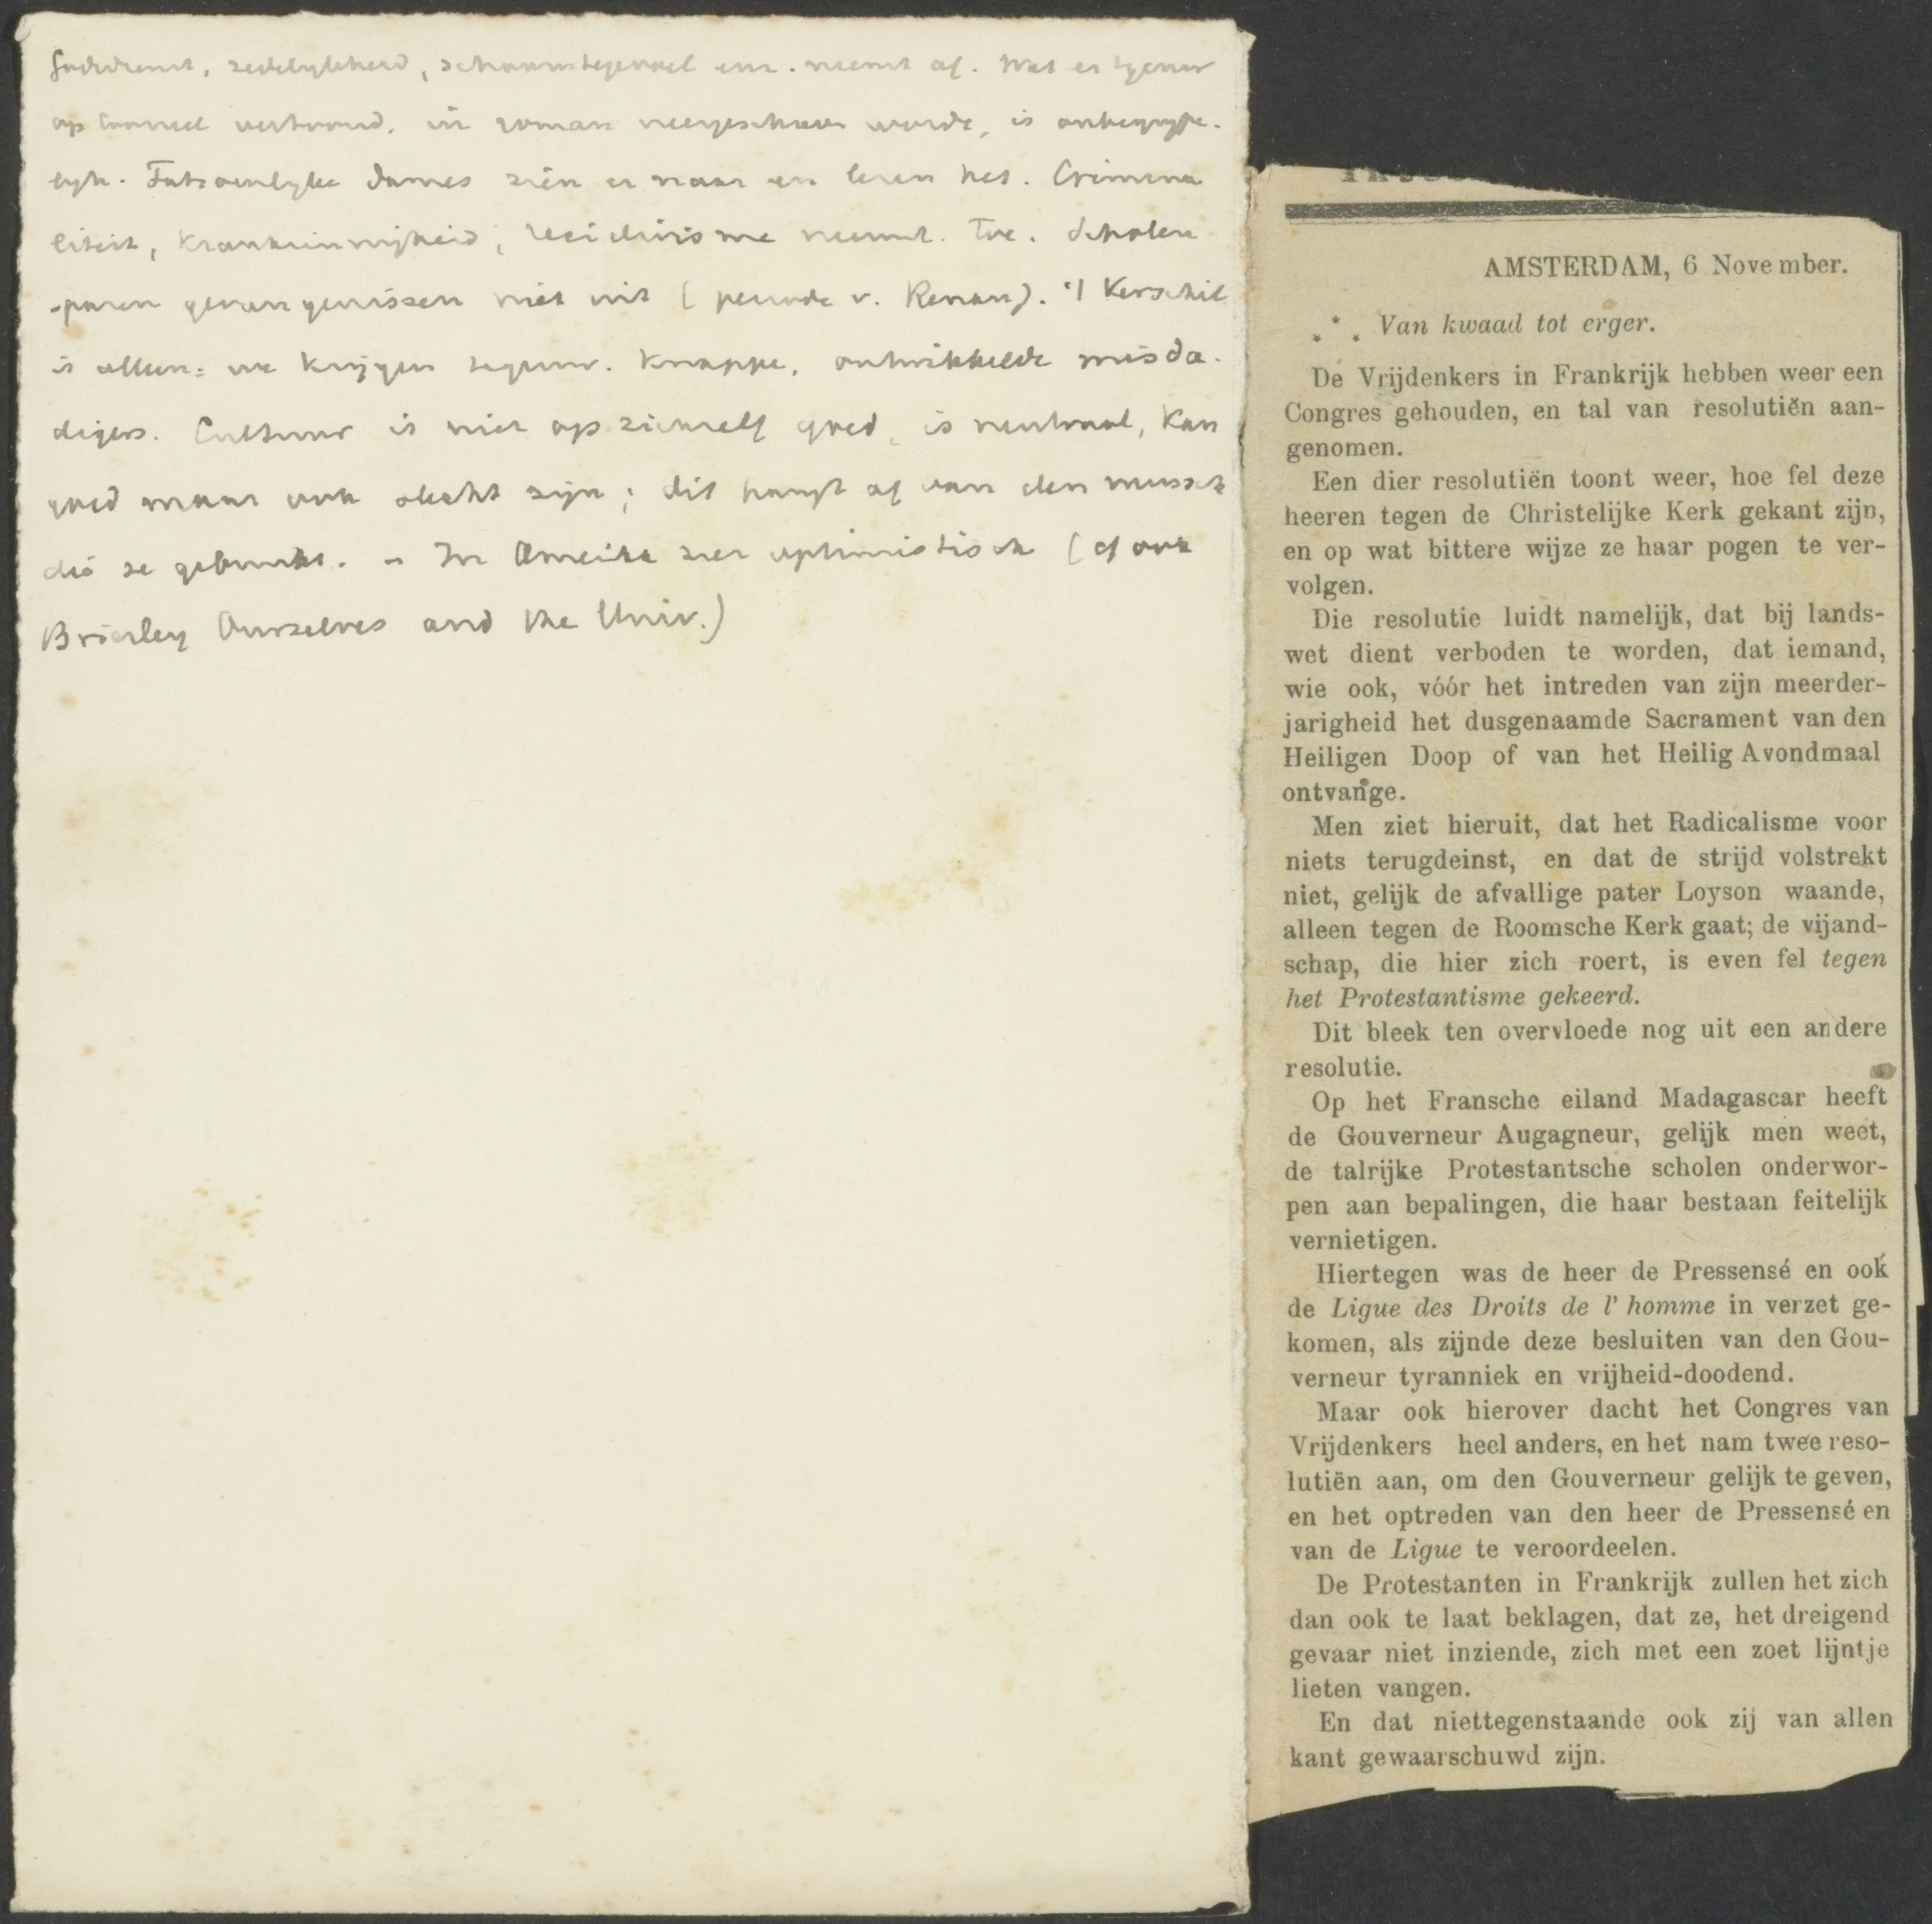 Godsdienst, zedelykheid, schaamtegevoel enz. neemt af. Wat er tgenw
op tooneel vertoond, in roman neergeschreven wordt, is onbegrype-
lyk. Fatsoenlyke dames zien er naar en lezen het. Crimina
liteit, krankzinnigheid, recidivisme neemt toe. Scholen
sparen gevangenissen niet uit (periode v. Renan). 't Verschil
is alleen: we krijgen tegenw. knappe, ontwikkelde misda-
digers. Cultuur is niet op zichzelf goed, is neutraal, kan
goed maar ook slecht zijn; dit hangt af van den mensch
die ze gebruikt. - In Amerika zeer optimistisch (cf ook
Brierley Ourselves and the Univ.)
AMSTERDAM, 6 November.
⁂ Van kwaad tot erger.
De Vrijdenkers in Frankrijk hebben weer een
Congres gehouden, en tal van resolutiën aan-
genomen.
Een dier resolutiën toont weer, hoe fel deze
heeren tegen de Christelijke Kerk gekant zijn,
en op wat bittere wijze ze haar pogen te ver-
volgen.
Die resolutie luidt namelijk, dat bij lands-
wet dient verboden te worden, dat iemand,
wie ook, vóór het intreden van zijn meerder-
jarigheid het dusgenaamde Sacrament van den
Heiligen Doop of van het Heilig Avondmaal
ontvange.
Men ziet hieruit, dat het Radicalisme voor
niets terugdeinst, en dat de strijd volstrekt
niet, gelijk de afvallige pater Loyson waande,
alleen tegen de Roomsche Kerk gaat; de vijand-
schap, die hier zich roert, is even fel tegen
het Protestantisme gekeerd.
Dit bleek ten overvloede nog uit een andere
resolutie.
Op het Fransche eiland Madagascar heeft
de Gouverneur Augagneur, gelijk men weet,
de talrijke Protestantsche scholen onderwor-
pen aan bepalingen, die haar bestaan feitelijk
vernietigen.
Hiertegen was de heer de Pressensé en ook
de Ligue des Droits de l' homme in verzet ge-
komen, als zijnde deze besluiten van den Gou-
verneur tyranniek en vrijheid-doodend.
Maar ook hierover dacht het Congres van
Vrijdenkers heel anders, en het nam twee reso-
lutiën aan, om den Gouverneur gelijk te geven,
en het optreden van den heer de Pressensé en
van de Ligue te veroordeelen.
De Protestanten in Frankrijk zullen het zich
dan ook te laat beklagen, dat ze, het dreigend
gevaar niet inziende, zich met een zoet lijntje
lieten vangen.
En dat niettegenstaande ook zij van allen
kant gewaarschuwd zijn.